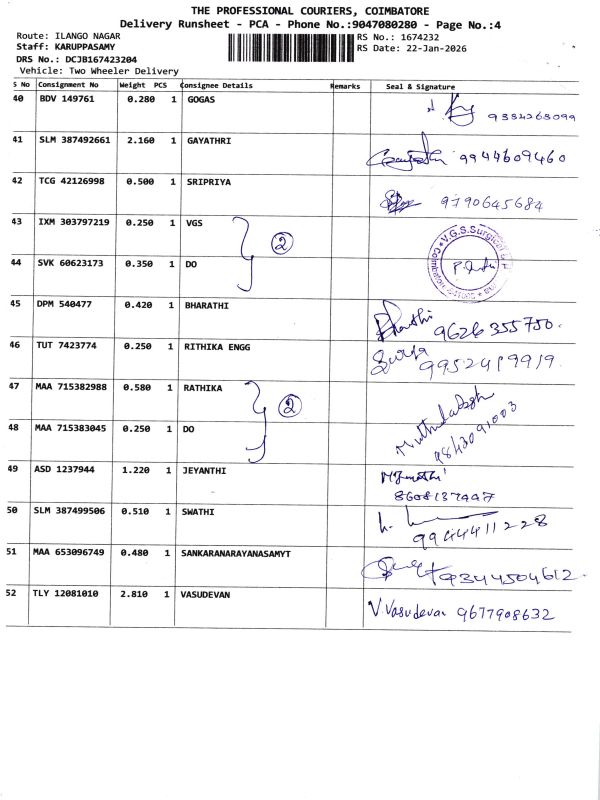 THE PROFESSIONAL COURIERS, COIMBATORE
Delivery Runsheet - PCA - Phone No.:9047080280 - Page No.:4
Route: ILANGO NAGAR RS No.: 1674232
Staff: KARUPPASAMY RS Date: 22-Jan-2026
DRS No.: DCJB167423204
Vehicle: Two Wheeler Delivery
S No Consignment No Weight PCS Consignee Details Remarks Seal & Signature
40 BDV 149761 0.280 1 GOGAS 9384268099
41 SLM 387492661 2.160 1 GAYATHRI Gayathri 9944609460
42 TCG 42126998 0.500 1 SRIPRIYA 9790645684
43 IXM 303797219 0.250 1 VGS 2 V.G.S.Surgical
44 SVK 60623173 0.350 1 DO
45 DPM 540477 0.420 1 BHARATHI Bharathi 9626355750.
46 TUT 7423774 0.250 1 RITHIKA ENGG Surya 9952419919.
47 MAA 715382988 0.580 1 RATHIKA 2
48 MAA 715383045 0.250 1 DO 9843091003
49 ASD 1237944 1.220 1 JEYANTHI 8608137447
50 SLM 387499506 0.510 1 SWATHI 9944411228
51 MAA 653096749 0.480 1 SANKARANARAYANASAMYT 9344504612.
52 TLY 12081010 2.810 1 VASUDEVAN V Vasudevan 9677908632